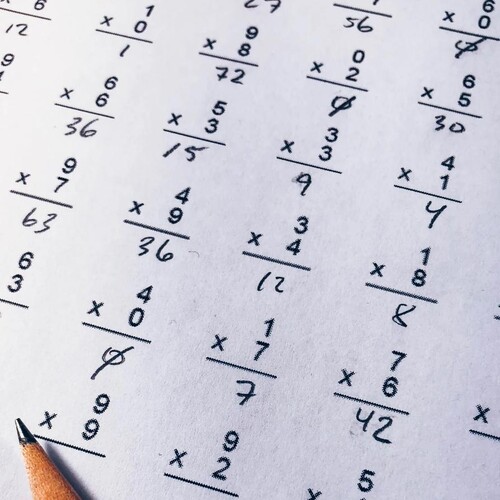 27
6
x 0
56
0
x 6
12
1
x 0
1
9
x 8
72
0
x 2
0
6
x 5
30
9
6
x 6
36
5
x 3
15
3
x 3
9
4
x 1
4
9
x 7
63
4
x 9
36
3
x 4
12
1
x 8
8
6
3
4
x 0
0
1
x 7
7
7
x 6
42
x
9
x 9
9
x 2
5
x